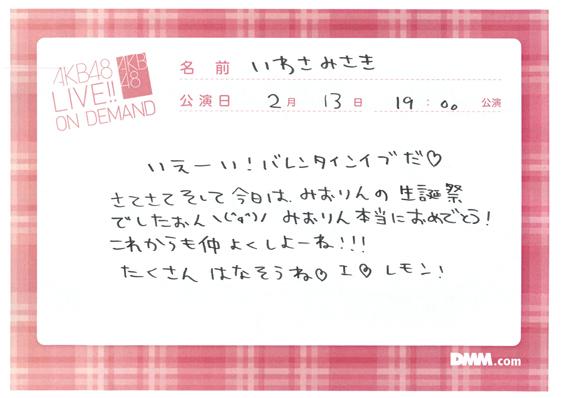 AKB48
LIVE!!
ON DEMAND
AKB
48
名前 いわさみさき
公演日 2月 13日 19:00 公演
いえーい!バレンタインイブだ♡
さてさてそして今日は、みおりんの生誕祭
でしたおん \(^o^)/ みおりん本当におめでとう!
これからも仲よくしよーね!!!
たくさんはなそうね♡ I♡レモン!
DMM.com